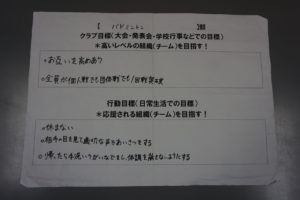 【 バドミントン 】部
クラブ目標(大会・発表会・学校行事などでの目標)
*高いレベルの組織(チーム)を目指す!
・お互いを高めあう
・全員が個人戦でも団体戦でも1回戦突破
行動目標(日常生活での目標)
*応援される組織(チーム)を目指す!
・休まない
・相手の目を見て適切な声であいさつをする
・帰ったら手洗いうがいなどをし、体調を崩さないようにする